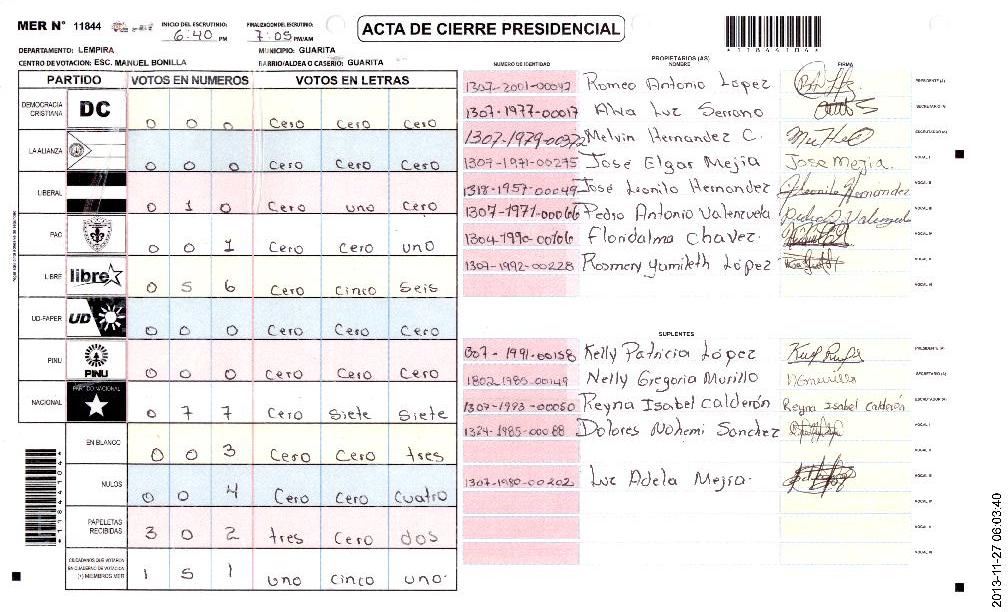 MER N° 11844
INICIO DEL ESCRUTINIO: 6:40 PM
FINALIZACION DEL ESCRUTINIO: 7:05 PM/AM
ACTA DE CIERRE PRESIDENCIAL
DEPARTAMENTO: LEMPIRA
MUNICIPIO: GUARITA
CENTRO DE VOTACION: ESC. MANUEL BONILLA
BARRIO/ALDEA O CASERIO: GUARITA
PARTIDO VOTOS EN NUMEROS VOTOS EN LETRAS
DEMOCRACIA CRISTIANA DC 0 0 0 Cero Cero Cero
LA ALIANZA 0 0 0 Cero Cero Cero
LIBERAL 0 1 0 Cero uno Cero
PAC 0 0 1 Cero Cero uno
LIBRE libre 0 5 6 Cero Cinco Seis
UD-FAPER UD 0 0 0 Cero Cero Cero
PINU PINU 0 0 0 Cero Cero Cero
NACIONAL PARTIDO NACIONAL 0 7 7 Cero Siete Siete
EN BLANCO 0 0 3 Cero Cero tres
NULOS 0 0 4 Cero Cero Cuatro
PAPELETAS RECIBIDAS 3 0 2 tres Cero dos
CIUDADANOS QUE VOTARON EN CUADERNO DE VOTACION (+) MIEMBROS MER 1 5 1 uno cinco uno
PROPIETARIOS (AS)
NUMERO DE IDENTIDAD NOMBRE FIRMA
1307-2001-00047 Romeo Antonio López PRESIDENTE (A)
1307-1977-00017 Alva Luz Serrano SECRETARIO (A)
1307-1979-00372 Melvin Hernandez C. ESCRUTADOR (A)
1307-1971-00275 Jose Elgar Mejia Jose Mejia. VOCAL I
1318-1957-00049 José Leonilo Hernandez Leonilo Hernandez VOCAL II
1307-1971-00066 Pedro Antonio Valenzuela VOCAL III
1304-1990-00106 Floridalma Chavez. VOCAL IV
1307-1992-00228 Rosmery Yamileth López VOCAL V
VOCAL VI
SUPLENTES
1307-1991-00158 Kelly Patricia López PRESIDENTE (A)
1802-1985-00149 Nelly Gregoria Murillo SECRETARIO (A)
1307-1993-00050 Reyna Isabel Calderón Reyna Isabel Calderón ESCRUTADOR (A)
1324-1985-00088 Dolores Nohemi Sanchez VOCAL I
VOCAL II
1307-1980-00202 Luz Adela Mejia. VOCAL III
VOCAL IV
VOCAL V
VOCAL VI
*11844104*
2013-11-27 06:03:40